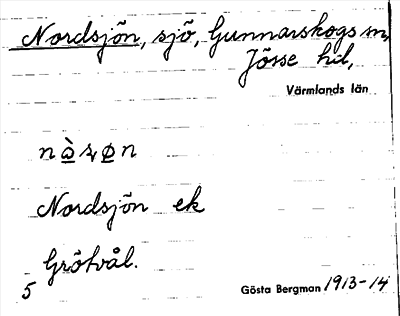 Nordsjön, sjö, Gunnarskogs sn,
Jösse hd,
Värmlands län
Nordsjön ek
Grötvål.
5
Gösta Bergman 1913-14